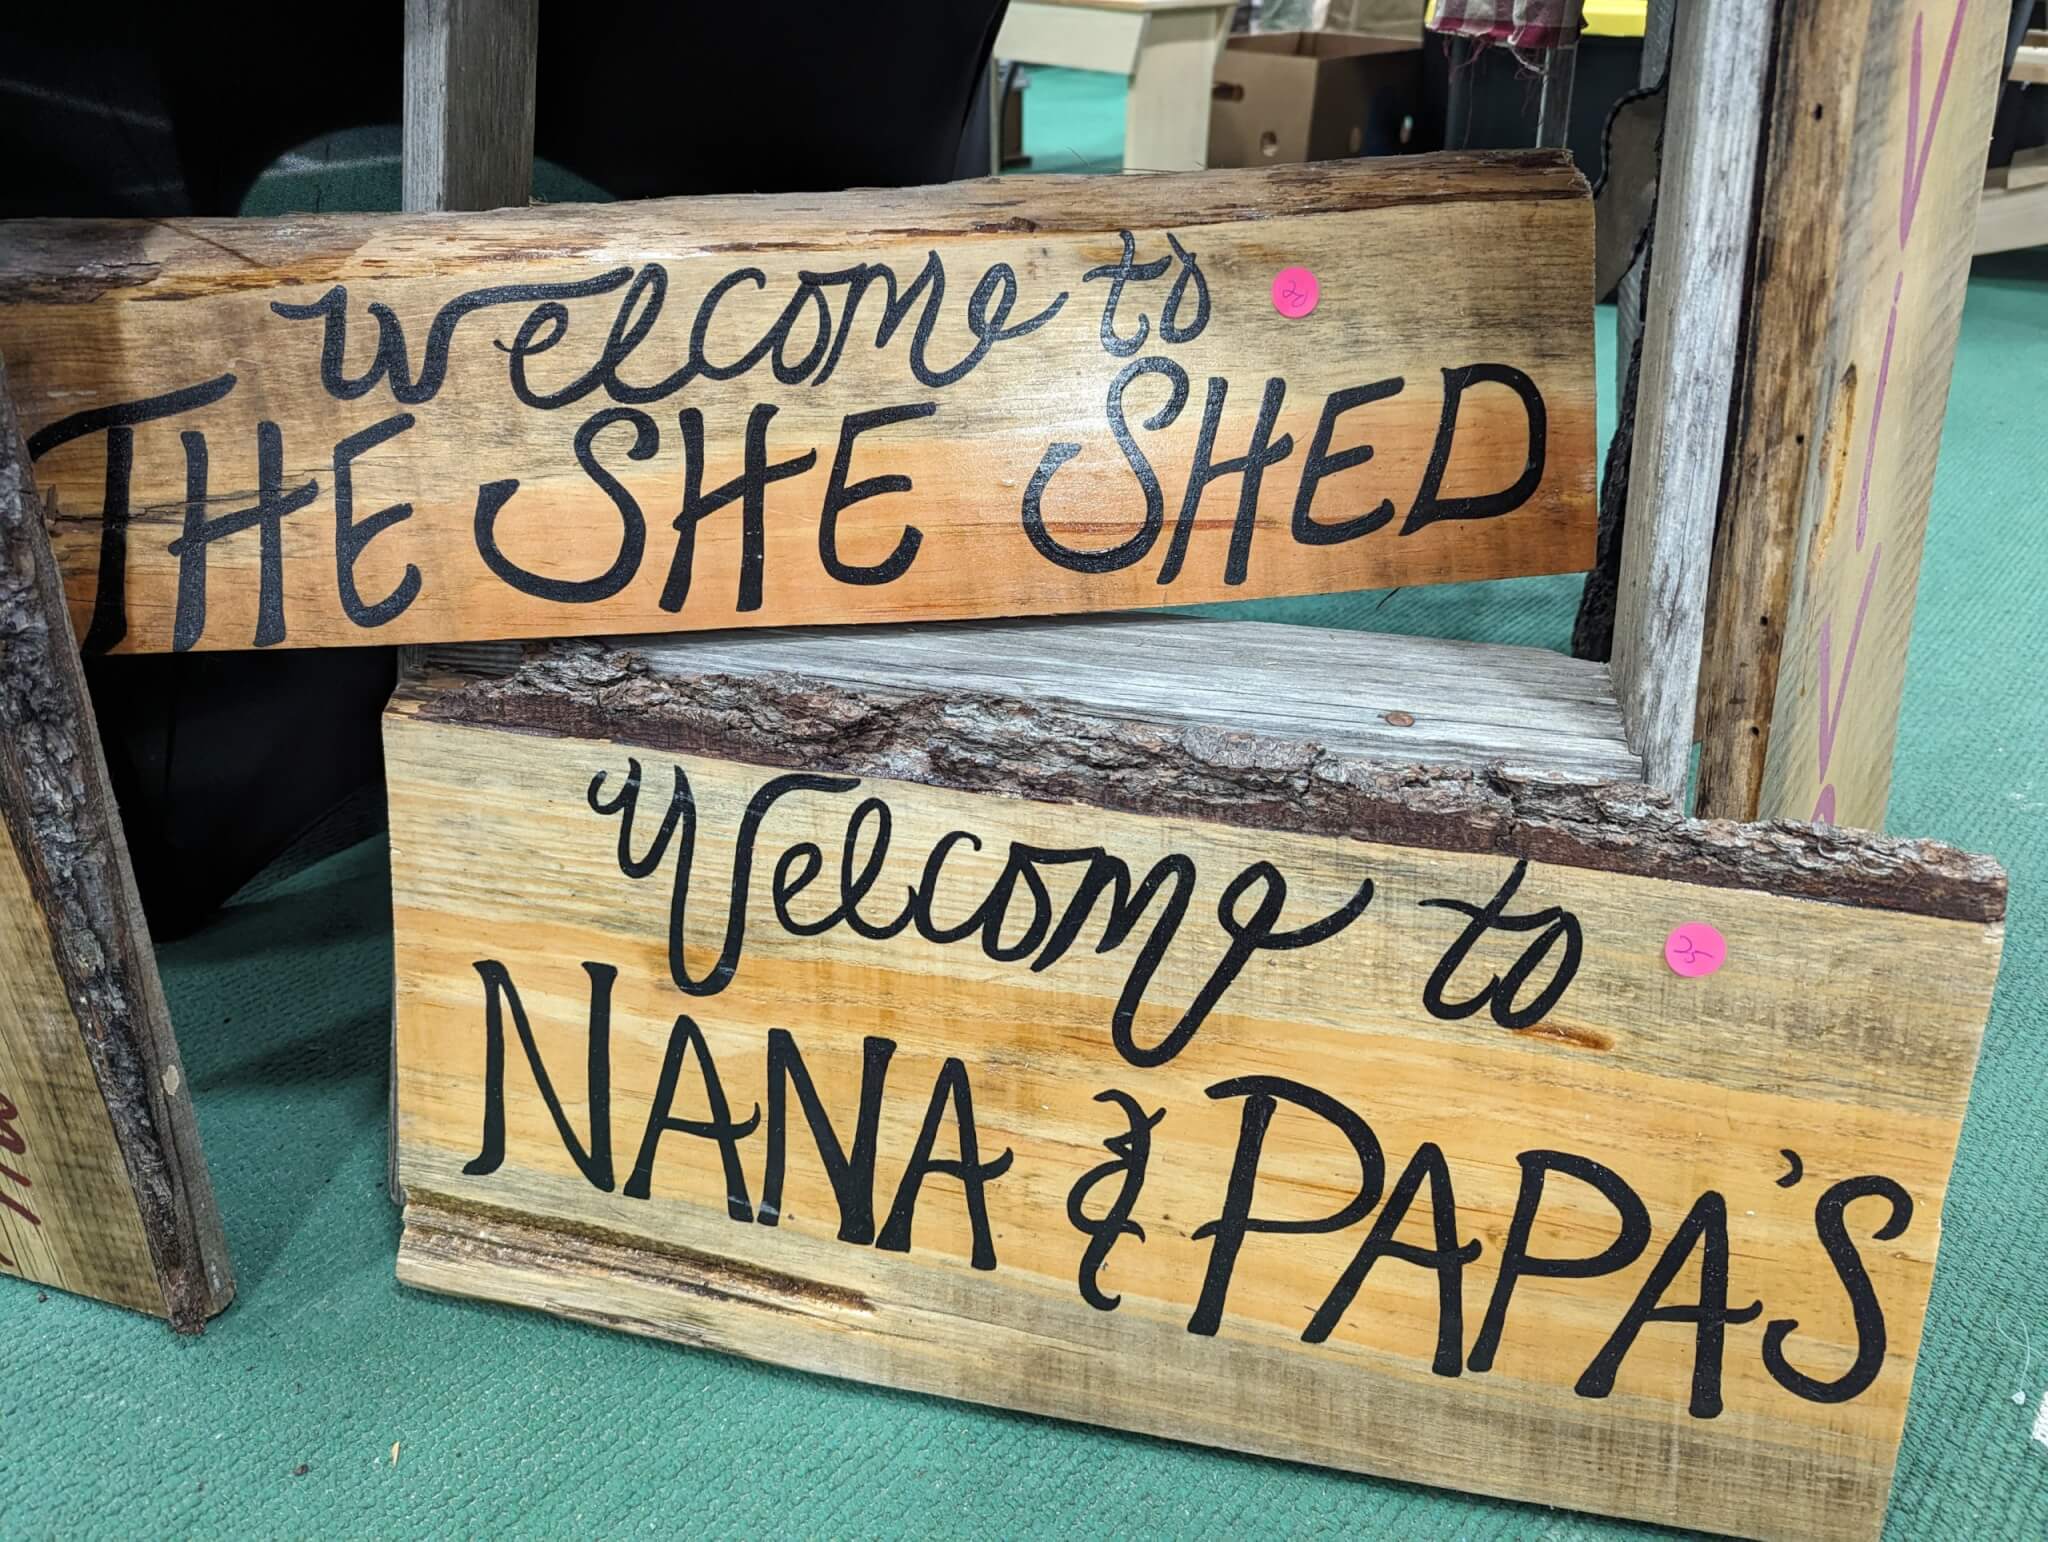 welcome to
THE SHE SHED
20
Welcome to
NANA & PAPA'S
25